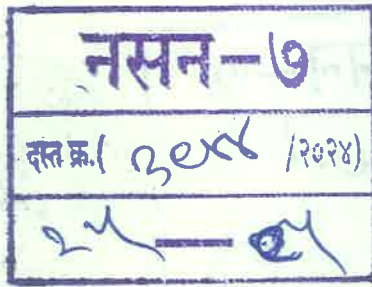 नसन-७
दस्त क्र.( ३९५४ /२०२४)
२५ — ८५